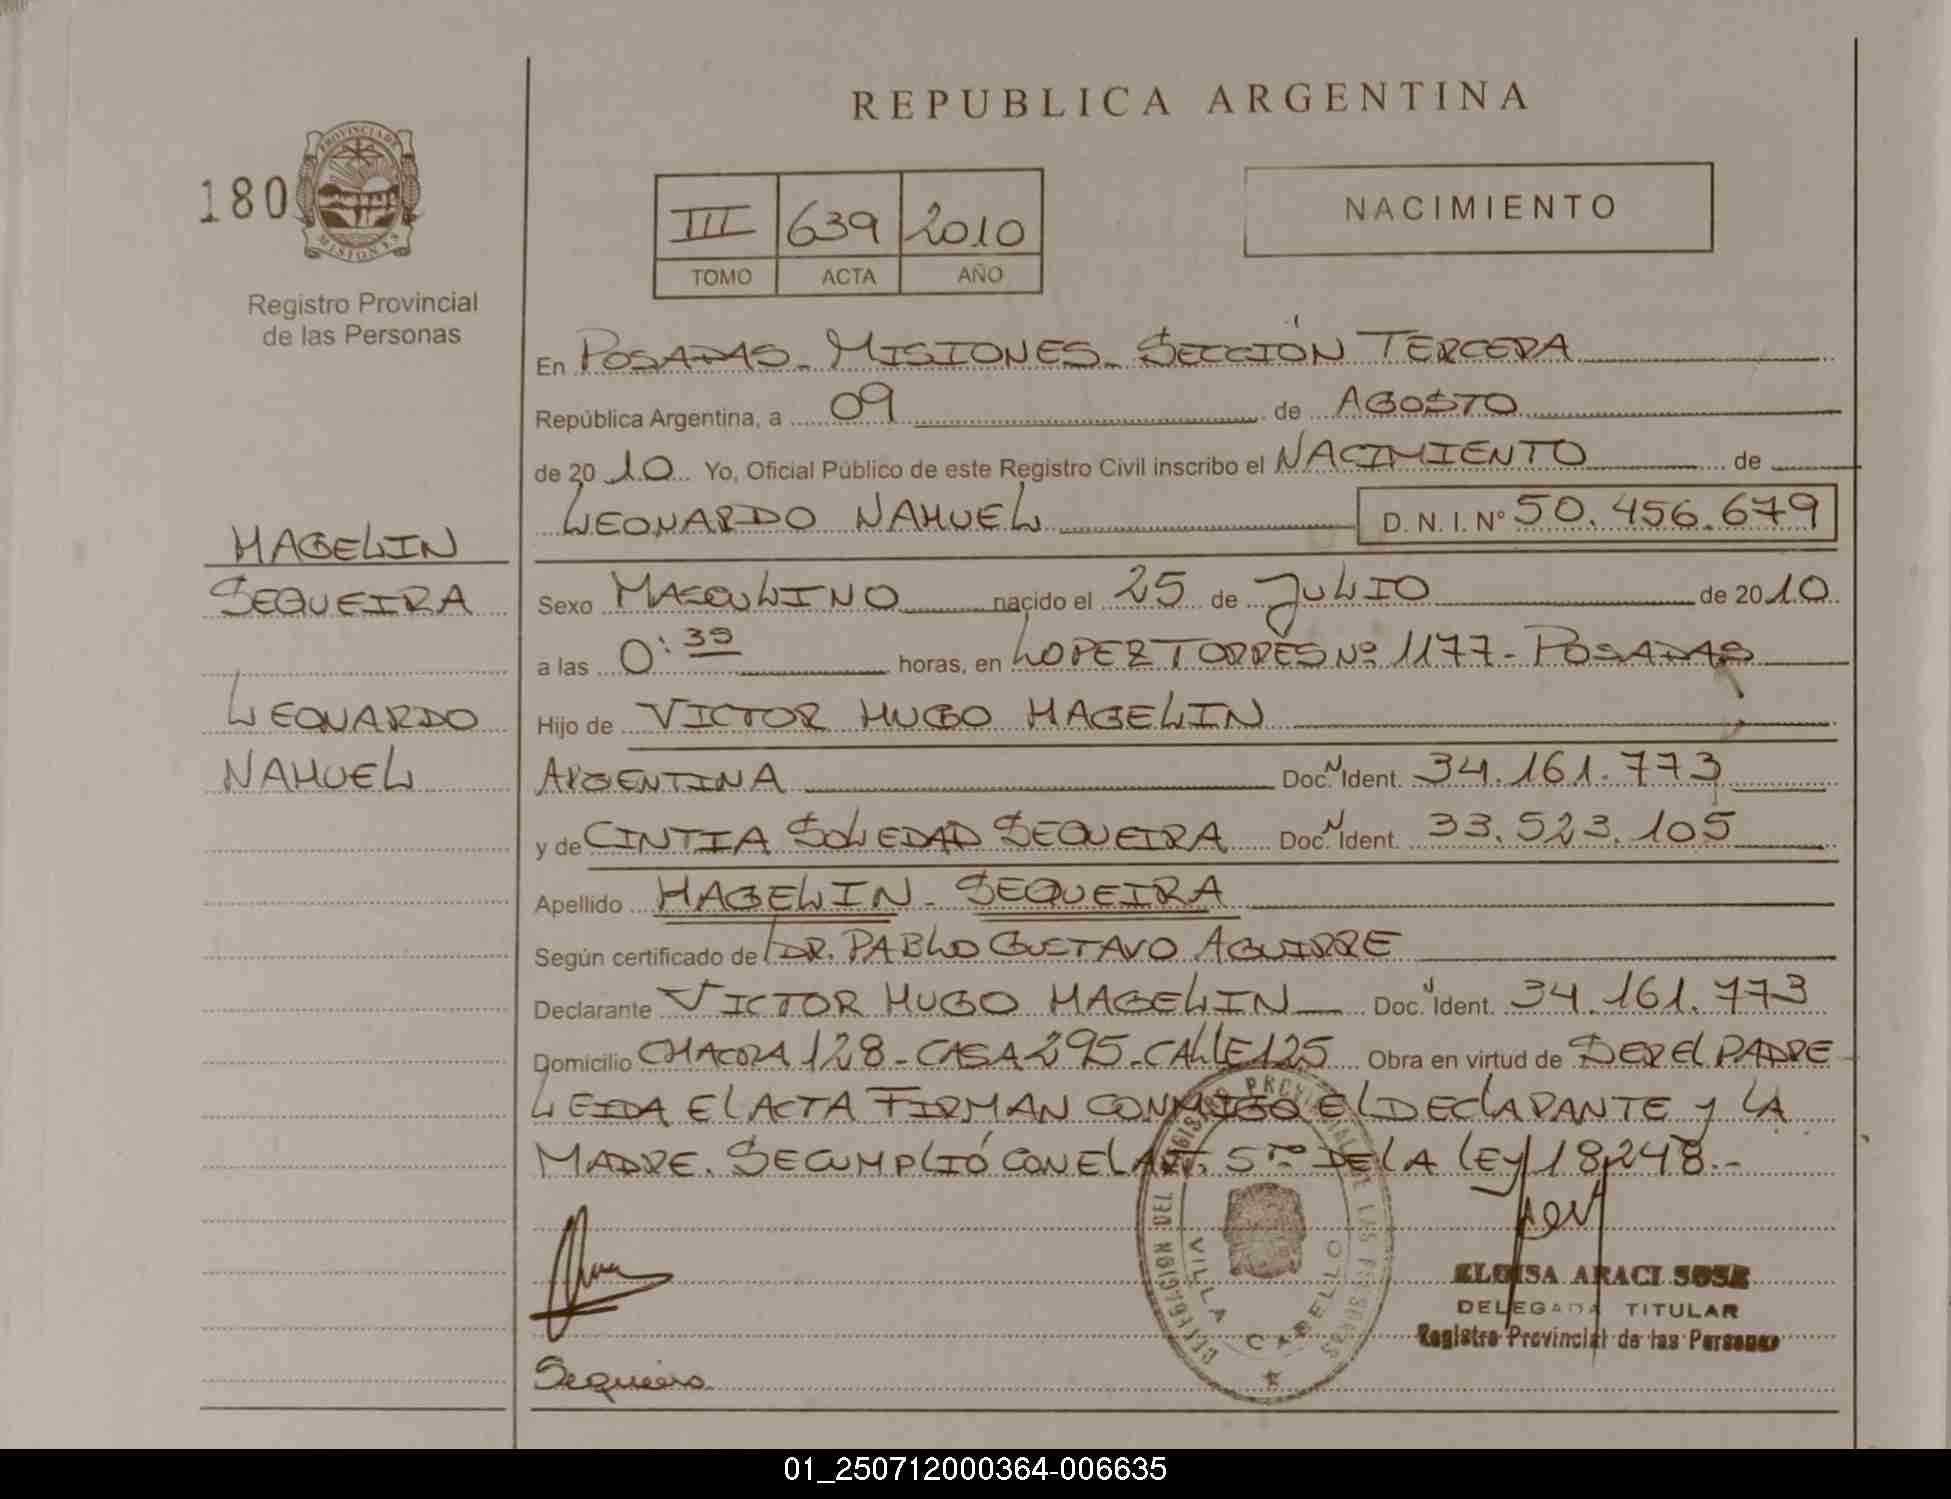 REPUBLICA ARGENTINA
180
PROVINCIA DE
MISIONES
Registro Provincial
de las Personas
III 639 2010
TOMO ACTA AÑO
NACIMIENTO
En POSADAS - MISIONES - SECCIÓN TERCERA
República Argentina, a 09 de AGOSTO
de 2010 Yo, Oficial Público de este Registro Civil inscribo el NACIMIENTO de
LEONARDO NAHUEL D. N. I. Nº 50.456.679
HAGELIN
SEQUEIRA
LEONARDO
NAHUEL
Sexo MASCULINO nacido el 25 de JULIO de 2010
a las 0:39 horas, en LOPEZ TORRES Nº 1177 - POSADAS
Hijo de VICTOR HUGO HAGELIN
ARGENTINA Doc. N Ident. 34.161.773
y de CINTIA SOLEDAD SEQUEIRA Doc. N Ident. 33.523.105
Apellido HAGELIN - SEQUEIRA
Según certificado de DR. PABLO GUSTAVO AGUIRRE
Declarante VICTOR HUGO HAGELIN Doc. N Ident. 34.161.773
Domicilio CHACRA 128 - CASA 295 - CALLE 125 Obra en virtud de SER EL PADRE
LEIDA EL ACTA FIRMAN CONMIGO EL DECLARANTE y LA
MADRE. SE CUMPLIÓ CON EL ART. 5to DE LA LEY 18248.-
DELEGACION DEL REGISTRO PROVINCIAL DE LAS PERSONAS
VILLA CABELLO
ELOISA ARACI SOSA
DELEGADA TITULAR
Registro Provincial de las Personas
Sequeira
01_250712000364-006635